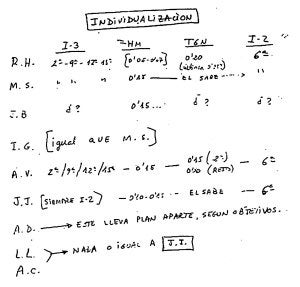 INDIVIDUALIZACION
I-3 HM TGN I-2
R.H. 2ª-9ª-12ª-15ª [0'05-0'07] 0'20 6ª
M.S. " " " 0'15 EL SABE "
J.B ¿? 0'15... ¿? ¿?
I.G. [igual QUE M.S.]
A.V. 2ª/9ª/12ª/15ª - 0'15 0'15 (2ª) - 6ª
0'20 (RESTO)
J.J. [SIEMPRE I-2] - 0'10-0'05 - EL SABE - 6ª
A.D. → ESTE LLEVA PLAN APARTE, SEGUN OBJETIVOS.
L.L. → NADA O IGUAL A J.J.
A.C.